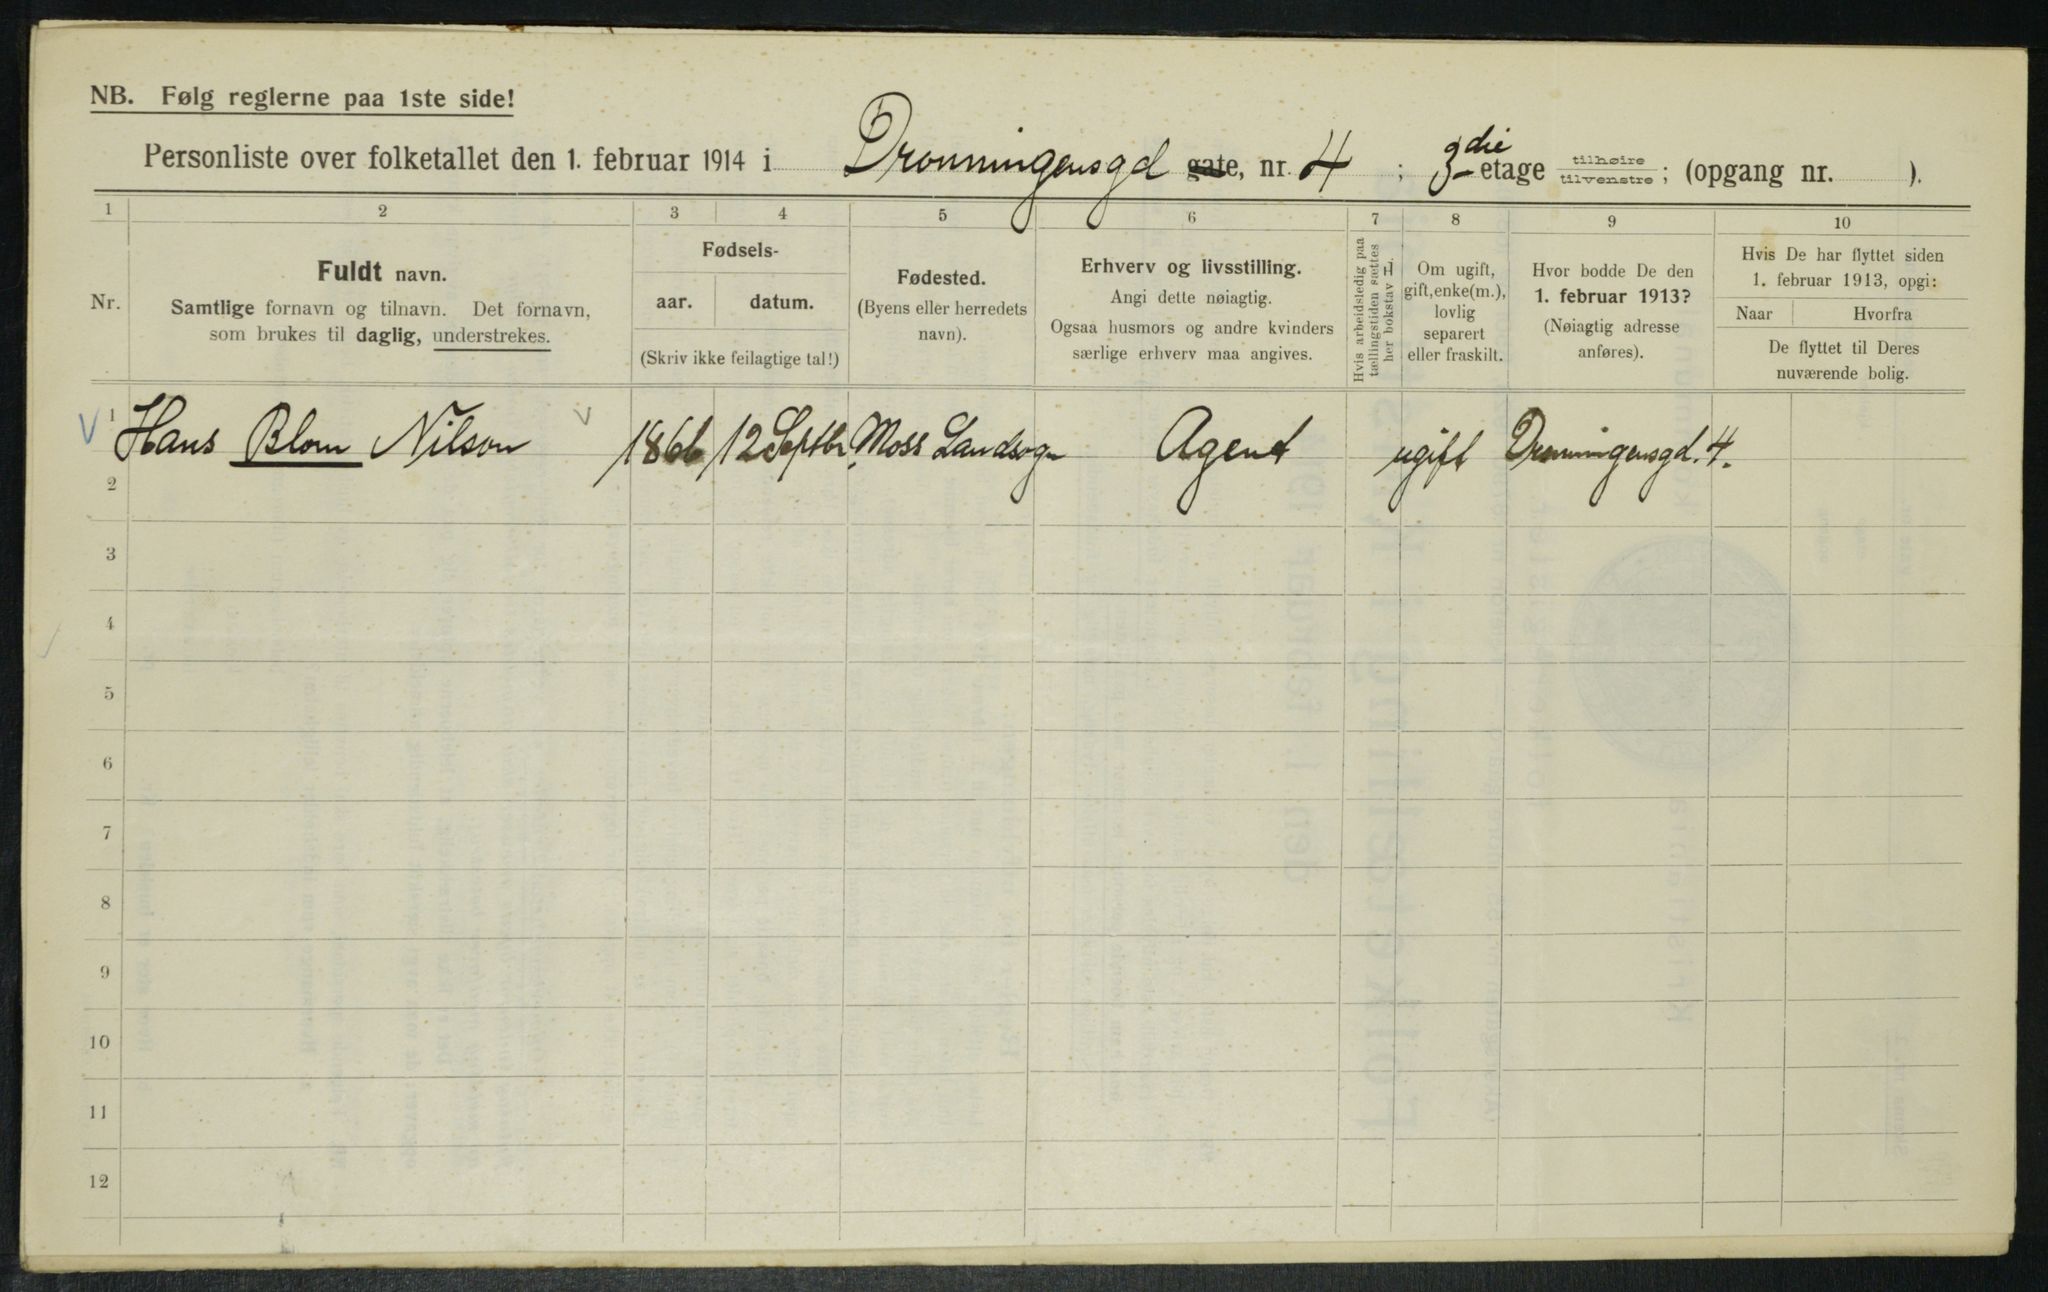 NB. Følg reglerne paa 1ste side!
Personliste over folketallet den 1. februar 1914 i Dronningensgd gate, nr. 4 ; 3die etage tilhøire tilvenstre ; (opgang nr. ).
1 2 3 4 5 6 7 8 9 10
Nr.
Fuldt navn.
Samtlige fornavn og tilnavn. Det fornavn,
som brukes til daglig, understrekes.
Fødsels-
aar. datum.
(Skriv ikke feilagtige tal!)
Fødested.
(Byens eller herredets
navn).
Erhverv og livsstilling.
Angi dette nøiagtig.
Ogsaa husmors og andre kvinders
særlige erhverv maa angives.
Hvis arbeidsledig paa
tællingstiden sættes
her bokstav L.
Om ugift,
gift, enke(m.),
lovlig
separert
eller fraskilt.
Hvor bodde De den
1. februar 1913?
(Nøiagtig adresse
anføres).
Hvis De har flyttet siden
1. februar 1913, opgi:
Naar Hvorfra
De flyttet til Deres
nuværende bolig.
1 Hans Blom Nilson 1866 12 Septbr. Moss Landsogn Agent ugift Dronningensgd. 4.
2
3
4
5
6
7
8
9
10
11
12